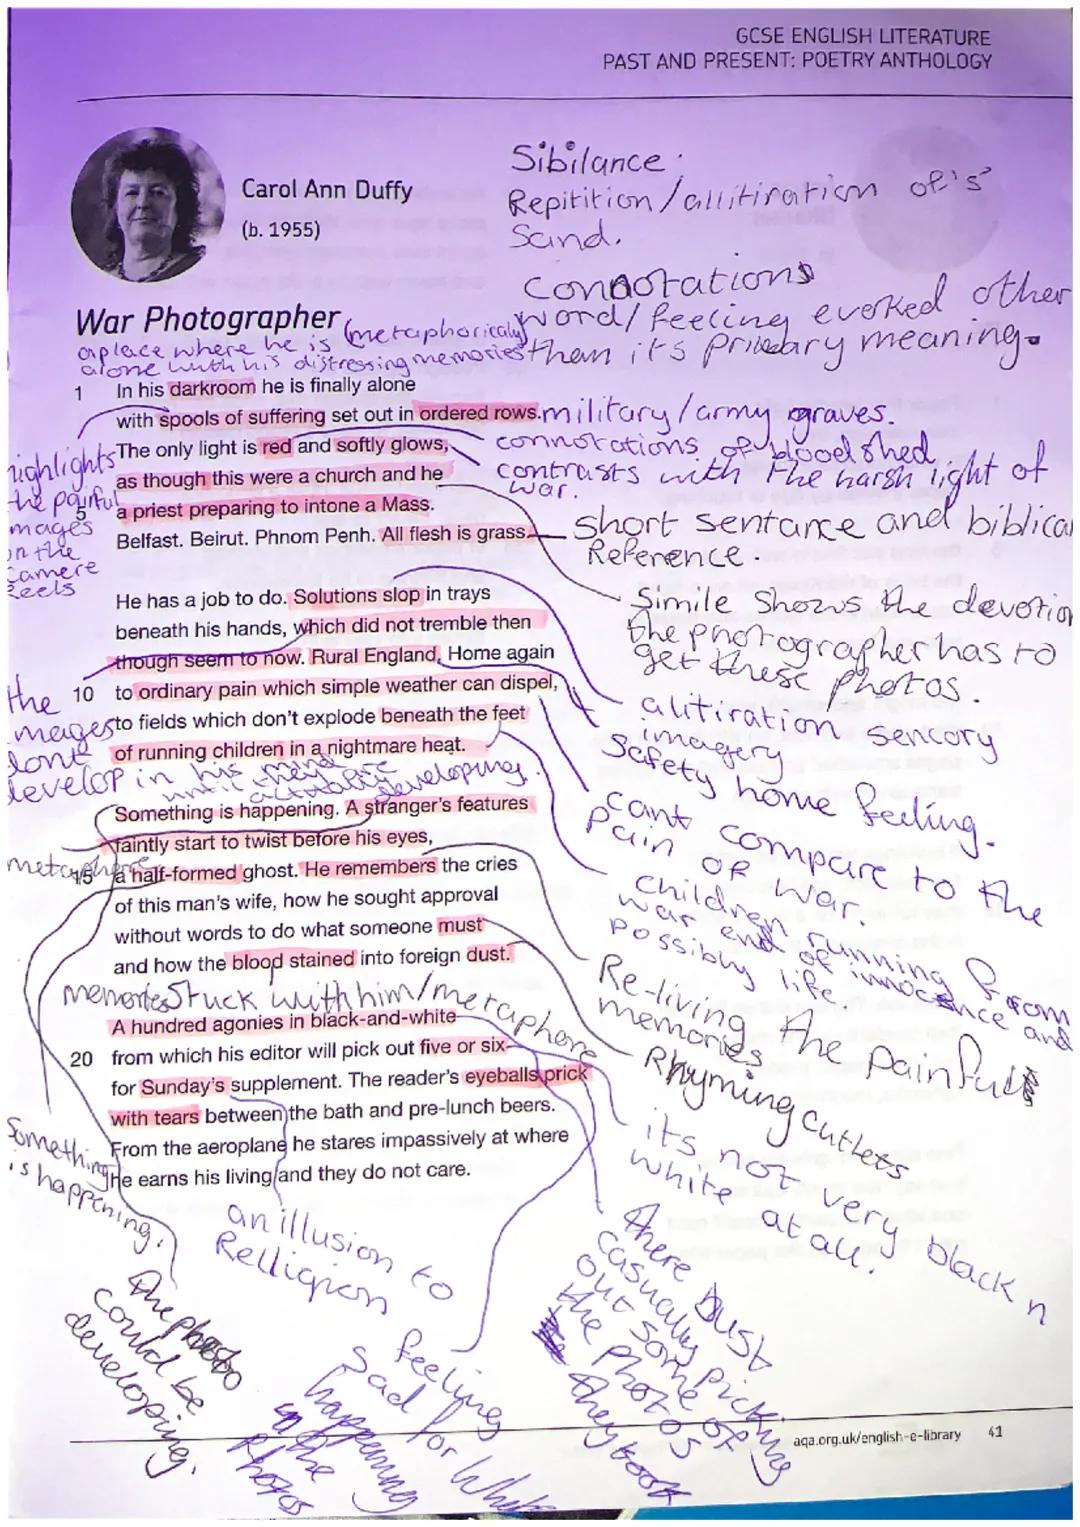 GCSE ENGLISH LITERATURE
PAST AND PRESENT: POETRY ANTHOLOGY
Carol Ann Duffy
(b. 1955)
Sibilance:
Repitition/allitiration of 's'
Sand.
connotations
word/feeling evoked other
than its primary meaning.
War Photographer
(metaphorically
a place where he is
alone with his distressing memories
1 In his darkroom he is finally alone
with spools of suffering set out in ordered rows.
military/army graves.
The only light is red and softly glows,
connotations of bloodshed
contrasts with the harsh light of
war.
as though this were a church and he
5 a priest preparing to intone a Mass.
Belfast. Beirut. Phnom Penh. All flesh is grass.
highlights
the painful
mages
on the
Camere
Reels
Short sentance and biblical
Reference.
Simile shows the devotion
the photographer has to
get these photos.
He has a job to do. Solutions slop in trays
beneath his hands, which did not tremble then
though seem to now. Rural England. Home again
10 to ordinary pain which simple weather can dispel,
to fields which don't explode beneath the feet
of running children in a nightmare heat.
the
images
dont
develop in his mind
until they are
actually developing.
alitiration sencory
imagery
Safety home feeling.
cant compare to the
pain of war.
children running from
war end of innocence and
possibly life.
Something is happening. A stranger's features
faintly start to twist before his eyes,
15 a half-formed ghost. He remembers the cries
of this man's wife, how he sought approval
without words to do what someone must
and how the blood stained into foreign dust.
metaphere
Re-living the painful
memories
Rhyming cutlets
memories stuck with him/metaphore
A hundred agonies in black-and-white
20 from which his editor will pick out five or six
for Sunday's supplement. The reader's eyeballs prick
with tears between the bath and pre-lunch beers.
From the aeroplane he stares impassively at where
he earns his living and they do not care.
its not very black n
white at all.
Something
is happening.
The photo
could be
developing.
an illusion to
Relligion
feeling
sad for what
happening
in the
Photos
there just
casually picking
out some of
the photos
they took
aqa.org.uk/english-e-library 41